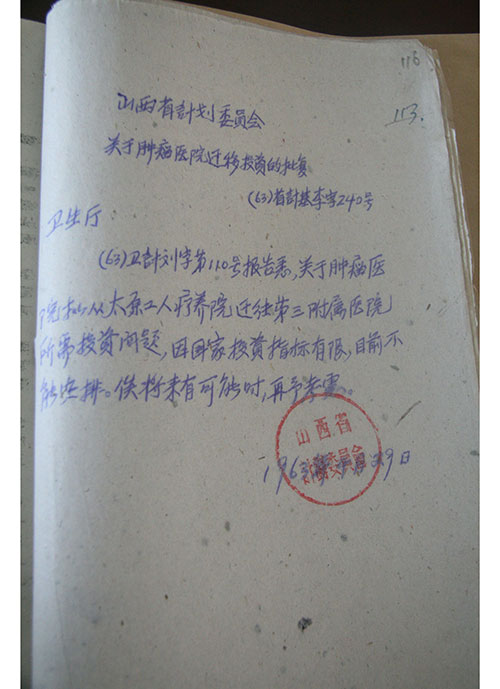 116
113.
山西省計划委员会
关于肿瘤医院迁移投资的批复
(63)省計基李字240号
卫生厅:
(63)卫計刘字第110号报告悉,关于肿瘤医
院拟从太原工人疗养院迁往第三附属医院
所需投资问题,因国家投资指标有限,目前不
能安排。俟将来有可能时,再予考虑。
山西省
委員会
196 年 月29日